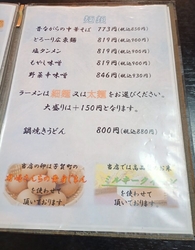 麺類
昔ながらの中華そば 773円(税込850円)
とろーり広東麺 819円(税込900円)
塩タンメン 819円(税込900円)
もやし味噌 846円(税込930円)
野菜辛味噌 846円(税込930円)
ラーメンは細麺又は太麺をお選びください。
大盛りは+150円となります。
鍋焼きうどん 800円(税込880円)
当店の卵は芳賀町の
を使わせて
頂いております。
当店では
を使わせて
頂いております。